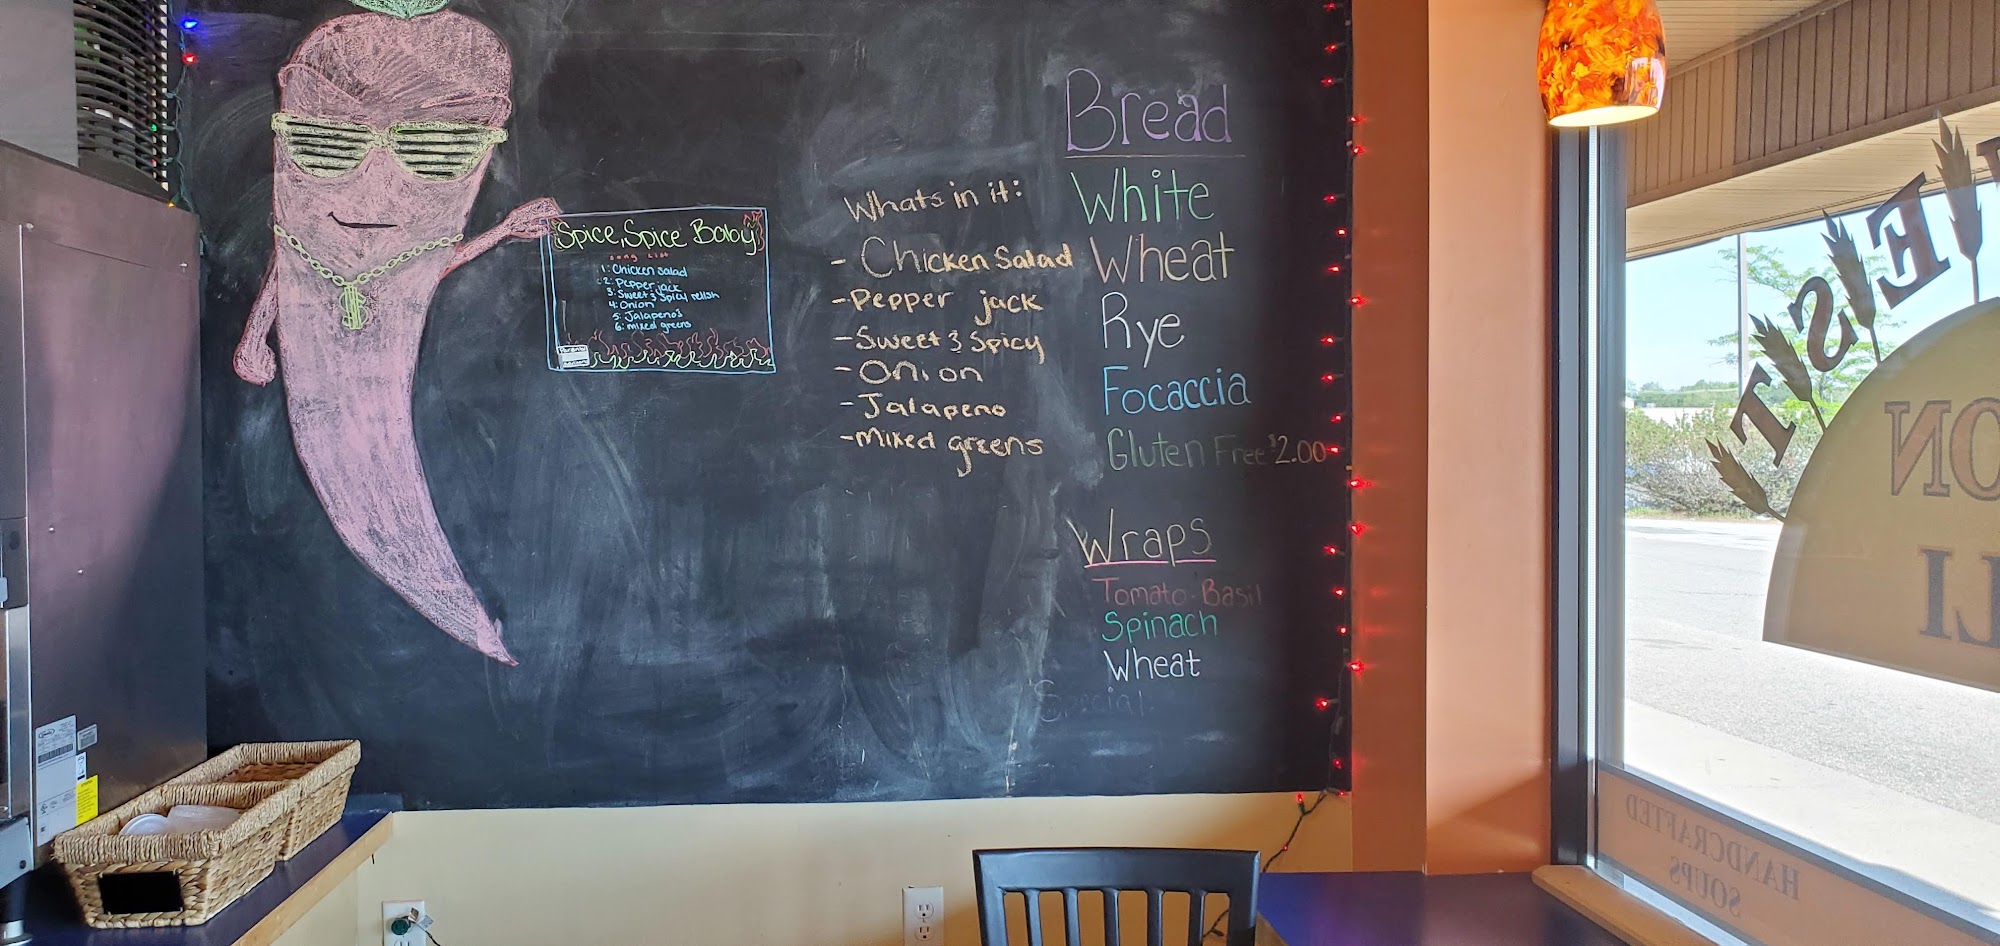 Spice, Spice Baby
Song List
1: Chicken Salad
2: Pepper jack
3: Sweet & Spicy relish
4: Onion
5: Jalapenos
6: mixed greens
Whats in it:
- Chicken Salad
- Pepper jack
- Sweet & Spicy
- Onion
- Jalapeno
- mixed greens
Bread
White
Wheat
Rye
Focaccia
Gluten Free $2.00
Wraps
Tomato-Basil
Spinach
Wheat
Special
HANDCRAFTED
SOUPS